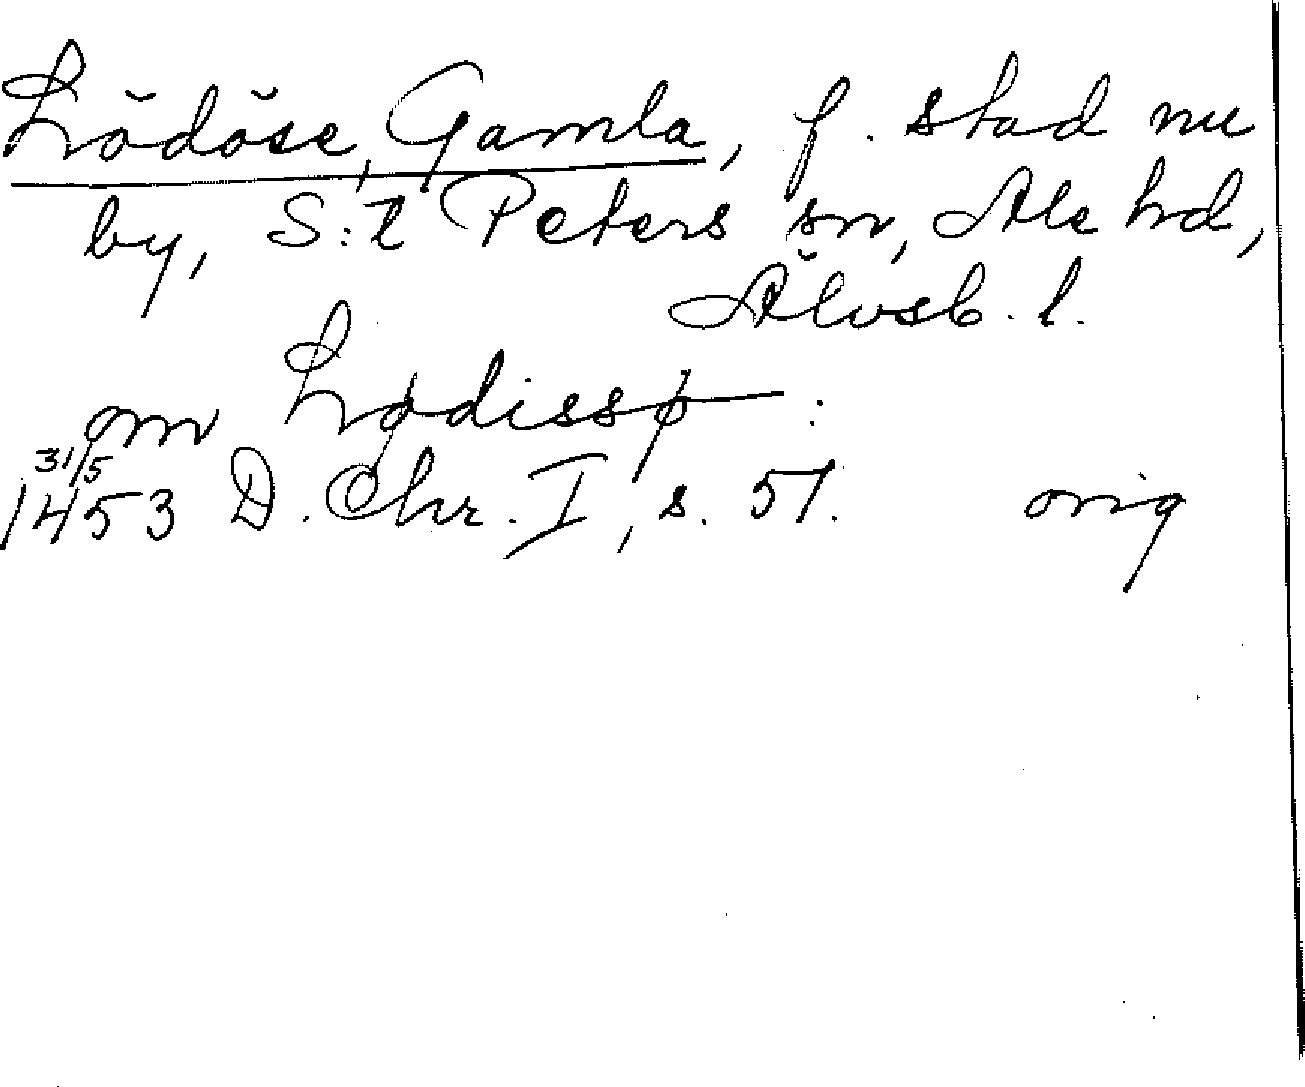 Lödöse, Gamla, f. stad nu
by, S:t Peters sn, Ale hd,
Älvsb. l.
om Lødissø :
31/5
1453 D. Chr. I, s. 51. orig